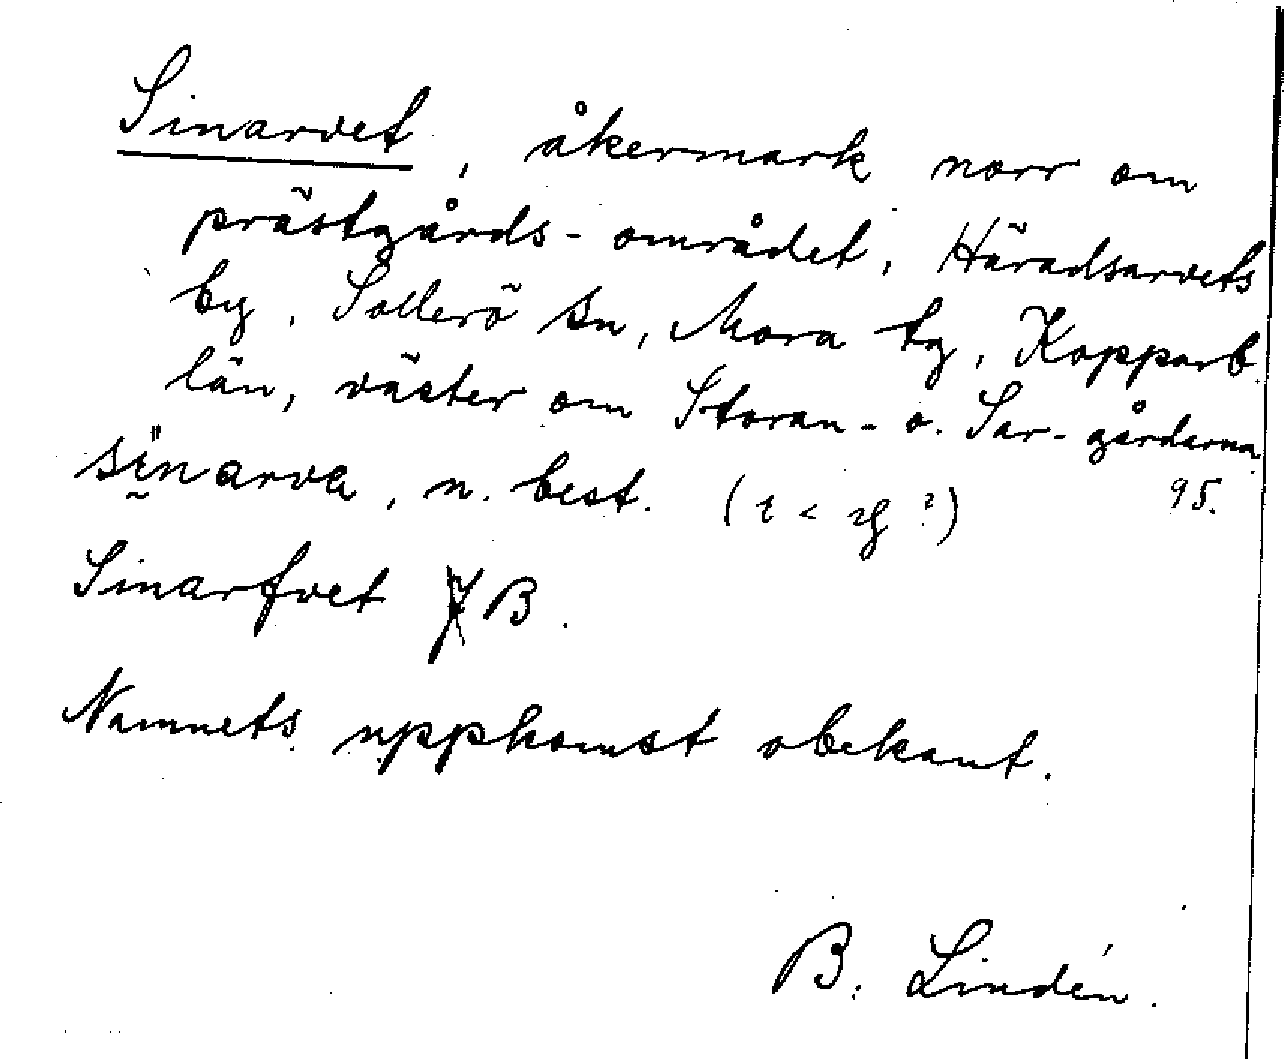 Sinarvet, åkermark norr om
prästgårds-området, Häradsarvets
by, Sollerö sn, Mora tg, Kopparb
län, väster om Storan- o. Sar-gårdarna
95.
sinarva, n. best.
Sinarfvet B.
Namnets uppkomst obekant.
B. Lindén.